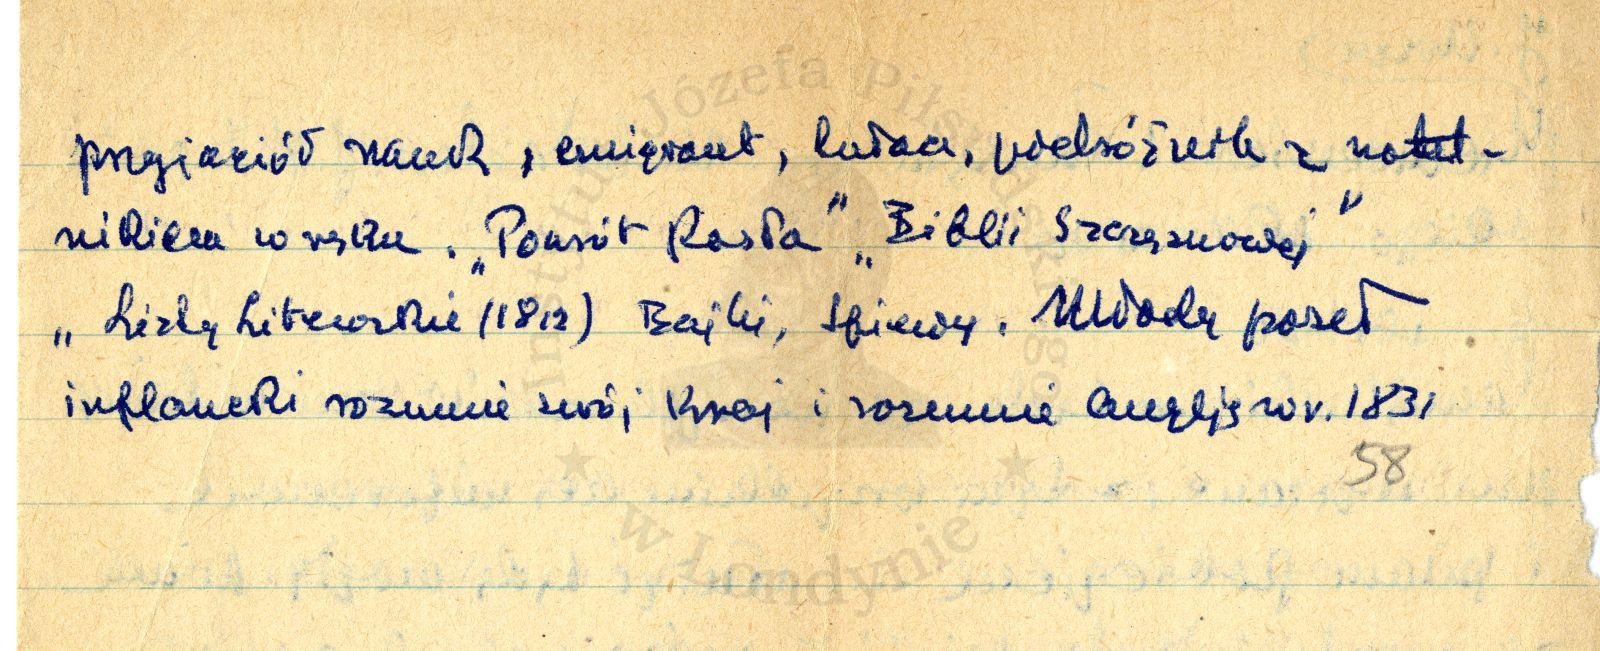 przyjaciół nauk, emigrant, tułacz, podróżnik z notat-
nikiem w ręku. „Powrót Posła” „Biblii Szczęsnowej”
„Listy Litewskie (1812) Bajki, Śpiewy. Młody poseł
inflancki rozumie swój kraj i rozumie Anglię w r. 1831
58
Instytut Józefa Piłsudskiego
w Londynie